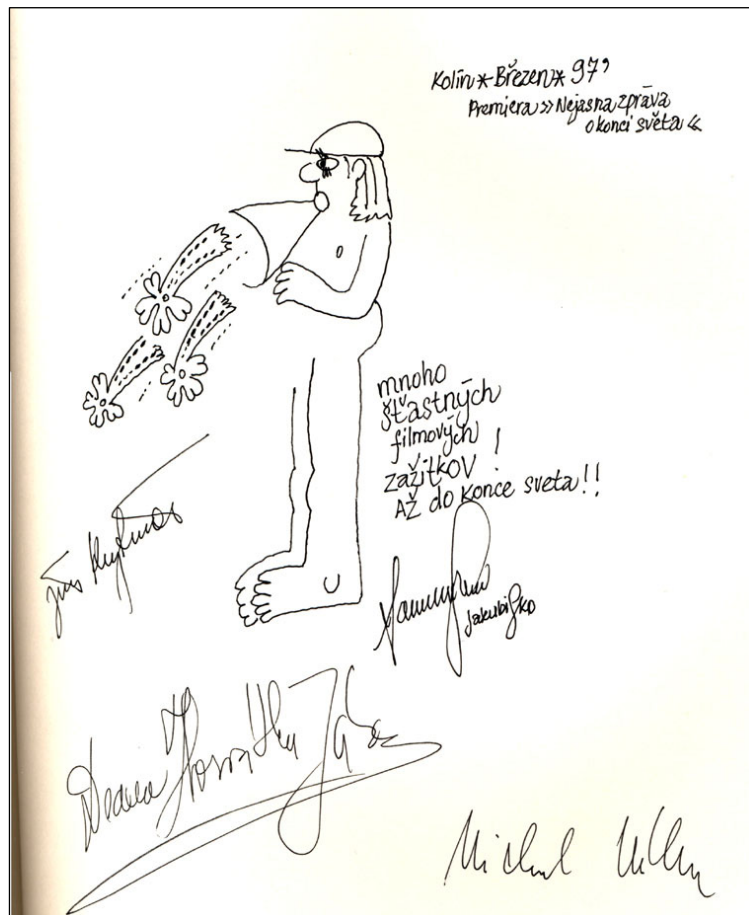 Kolín * Březen * 97'
Premiera »Nejasna zpráva
o konci světa«
mnoho
šťastných
filmových
zažitkov !
Až do konce sveta!!
Jakubisko
Deana
Michal